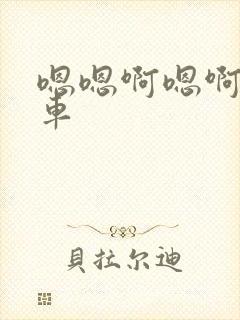 嗯嗯啊嗯啊
車
貝拉尔迪